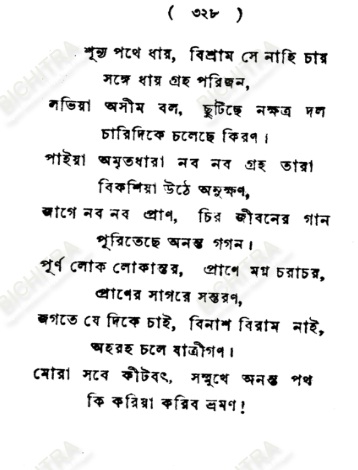 ( ৩২৮ )
শূন্য পথে ধায়, বিশ্রাম সে নাহি চায়
সঙ্গে ধায় গ্রহ পরিজন,
লভিয়া অসীম বল, ছুটিছে নক্ষত্র দল
চারিদিকে চলেছে কিরণ।
পাইয়া অমৃতধারা নব নব গ্রহ তারা
বিকশিয়া উঠে অনুক্ষণ,
জাগে নব নব প্রাণ, চির জীবনের গান
পূরিতেছে অনন্ত গগন।
পূর্ণ লোক লোকান্তর, প্রাণে মগ্ন চরাচর,
প্রাণের সাগরে সন্তরণ,
জগতে যে দিকে চাই, বিনাশ বিরাম নাই,
অহরহ চলে যাত্রীগণ।
মোরা সবে কীটবৎ, সম্মুখে অনন্ত পথ
কি করিয়া করিব ভ্রমণ!
BICHITRA
BICHITRA
BICHITRA
BICHITRA